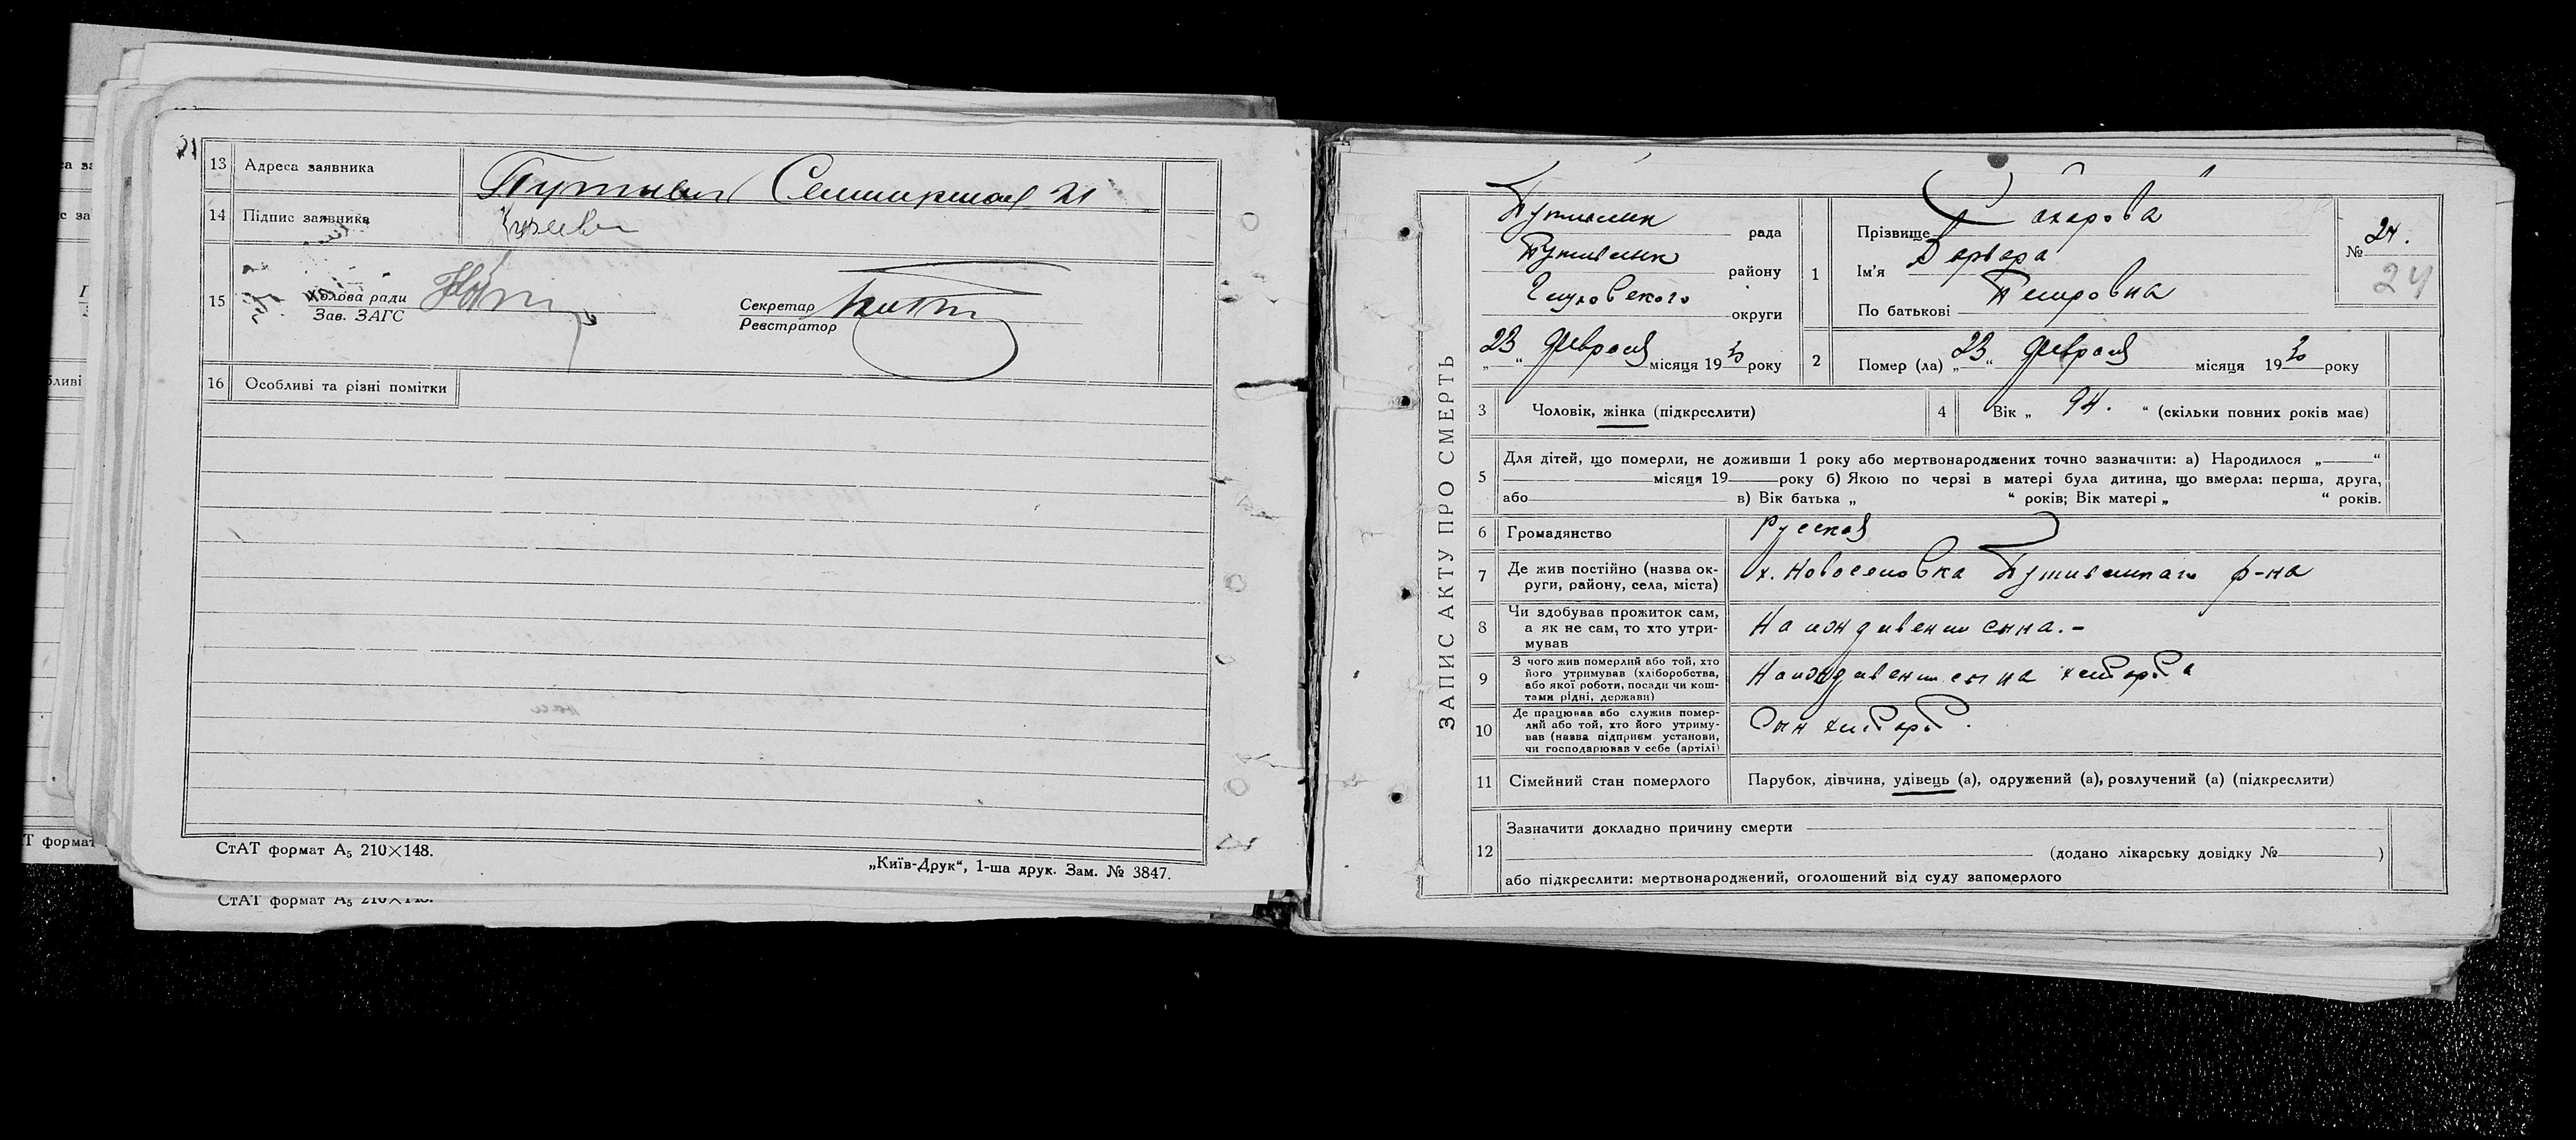 13 Адреса заявника Путивль 21
14 Підпис заявника
15 Голова ради
Зав. ЗАГС
Секретар
Реєстратор
16 Особливі та різні помітки
СтАТ формат А₅ 210×148.
„Київ-Друк“, 1-ша друк. Зам. № 3847.
СтАТ формат А₅ 210×148.
ЗАПИС АКТУ ПРО СМЕРТЬ
Путивльск рада
Путивльск району
Глуховского округи
„23“ Февраля місяця 1930 року
1 Прізвище Сахарова
Ім’я Варвара
По батькові Петровна
№ 24.
24
2 Помер (ла) „23“ Февраля місяця 1930 року
3 Чоловік, жінка (підкреслити)
4 Вік „ 94. “ (скільки повних років має)
5 Для дітей, що померли, не доживши 1 року або мертвонароджених точно зазначити: а) Народилося „ “
місяця 19 року б) Якою по черзі в матері була дитина, що вмерла: перша, друга,
або в) Вік батька „ “ років; Вік матері „ “ років.
6 Громадянство Русская
7 Де жив постійно (назва ок-
руги, району, села, міста) х. Новоселовка Путивльскаго р-на
8 Чи здобував прожиток сам,
а як не сам, то хто утри-
мував На иждивении сына.-
9 З чого жив померлий або той, хто
його утримував (хліборобства,
або якої роботи, посади чи кош-
тами рідні, держави) На иждивении сына хлебороба
10 Де працював або служив помер-
лий або той, хто його утриму-
вав (назва підприєм. установи,
чи господарював у себе (артілі) Сын хлебороб.
11 Сімейний стан померлого Парубок, дівчина, удівець (а), одружений (а), розлучений (а) (підкреслити)
12 Зазначити докладно причину смерти
(додано лікарську довідку № )
або підкреслити: мертвонароджений, оголошений від суду запомерлого